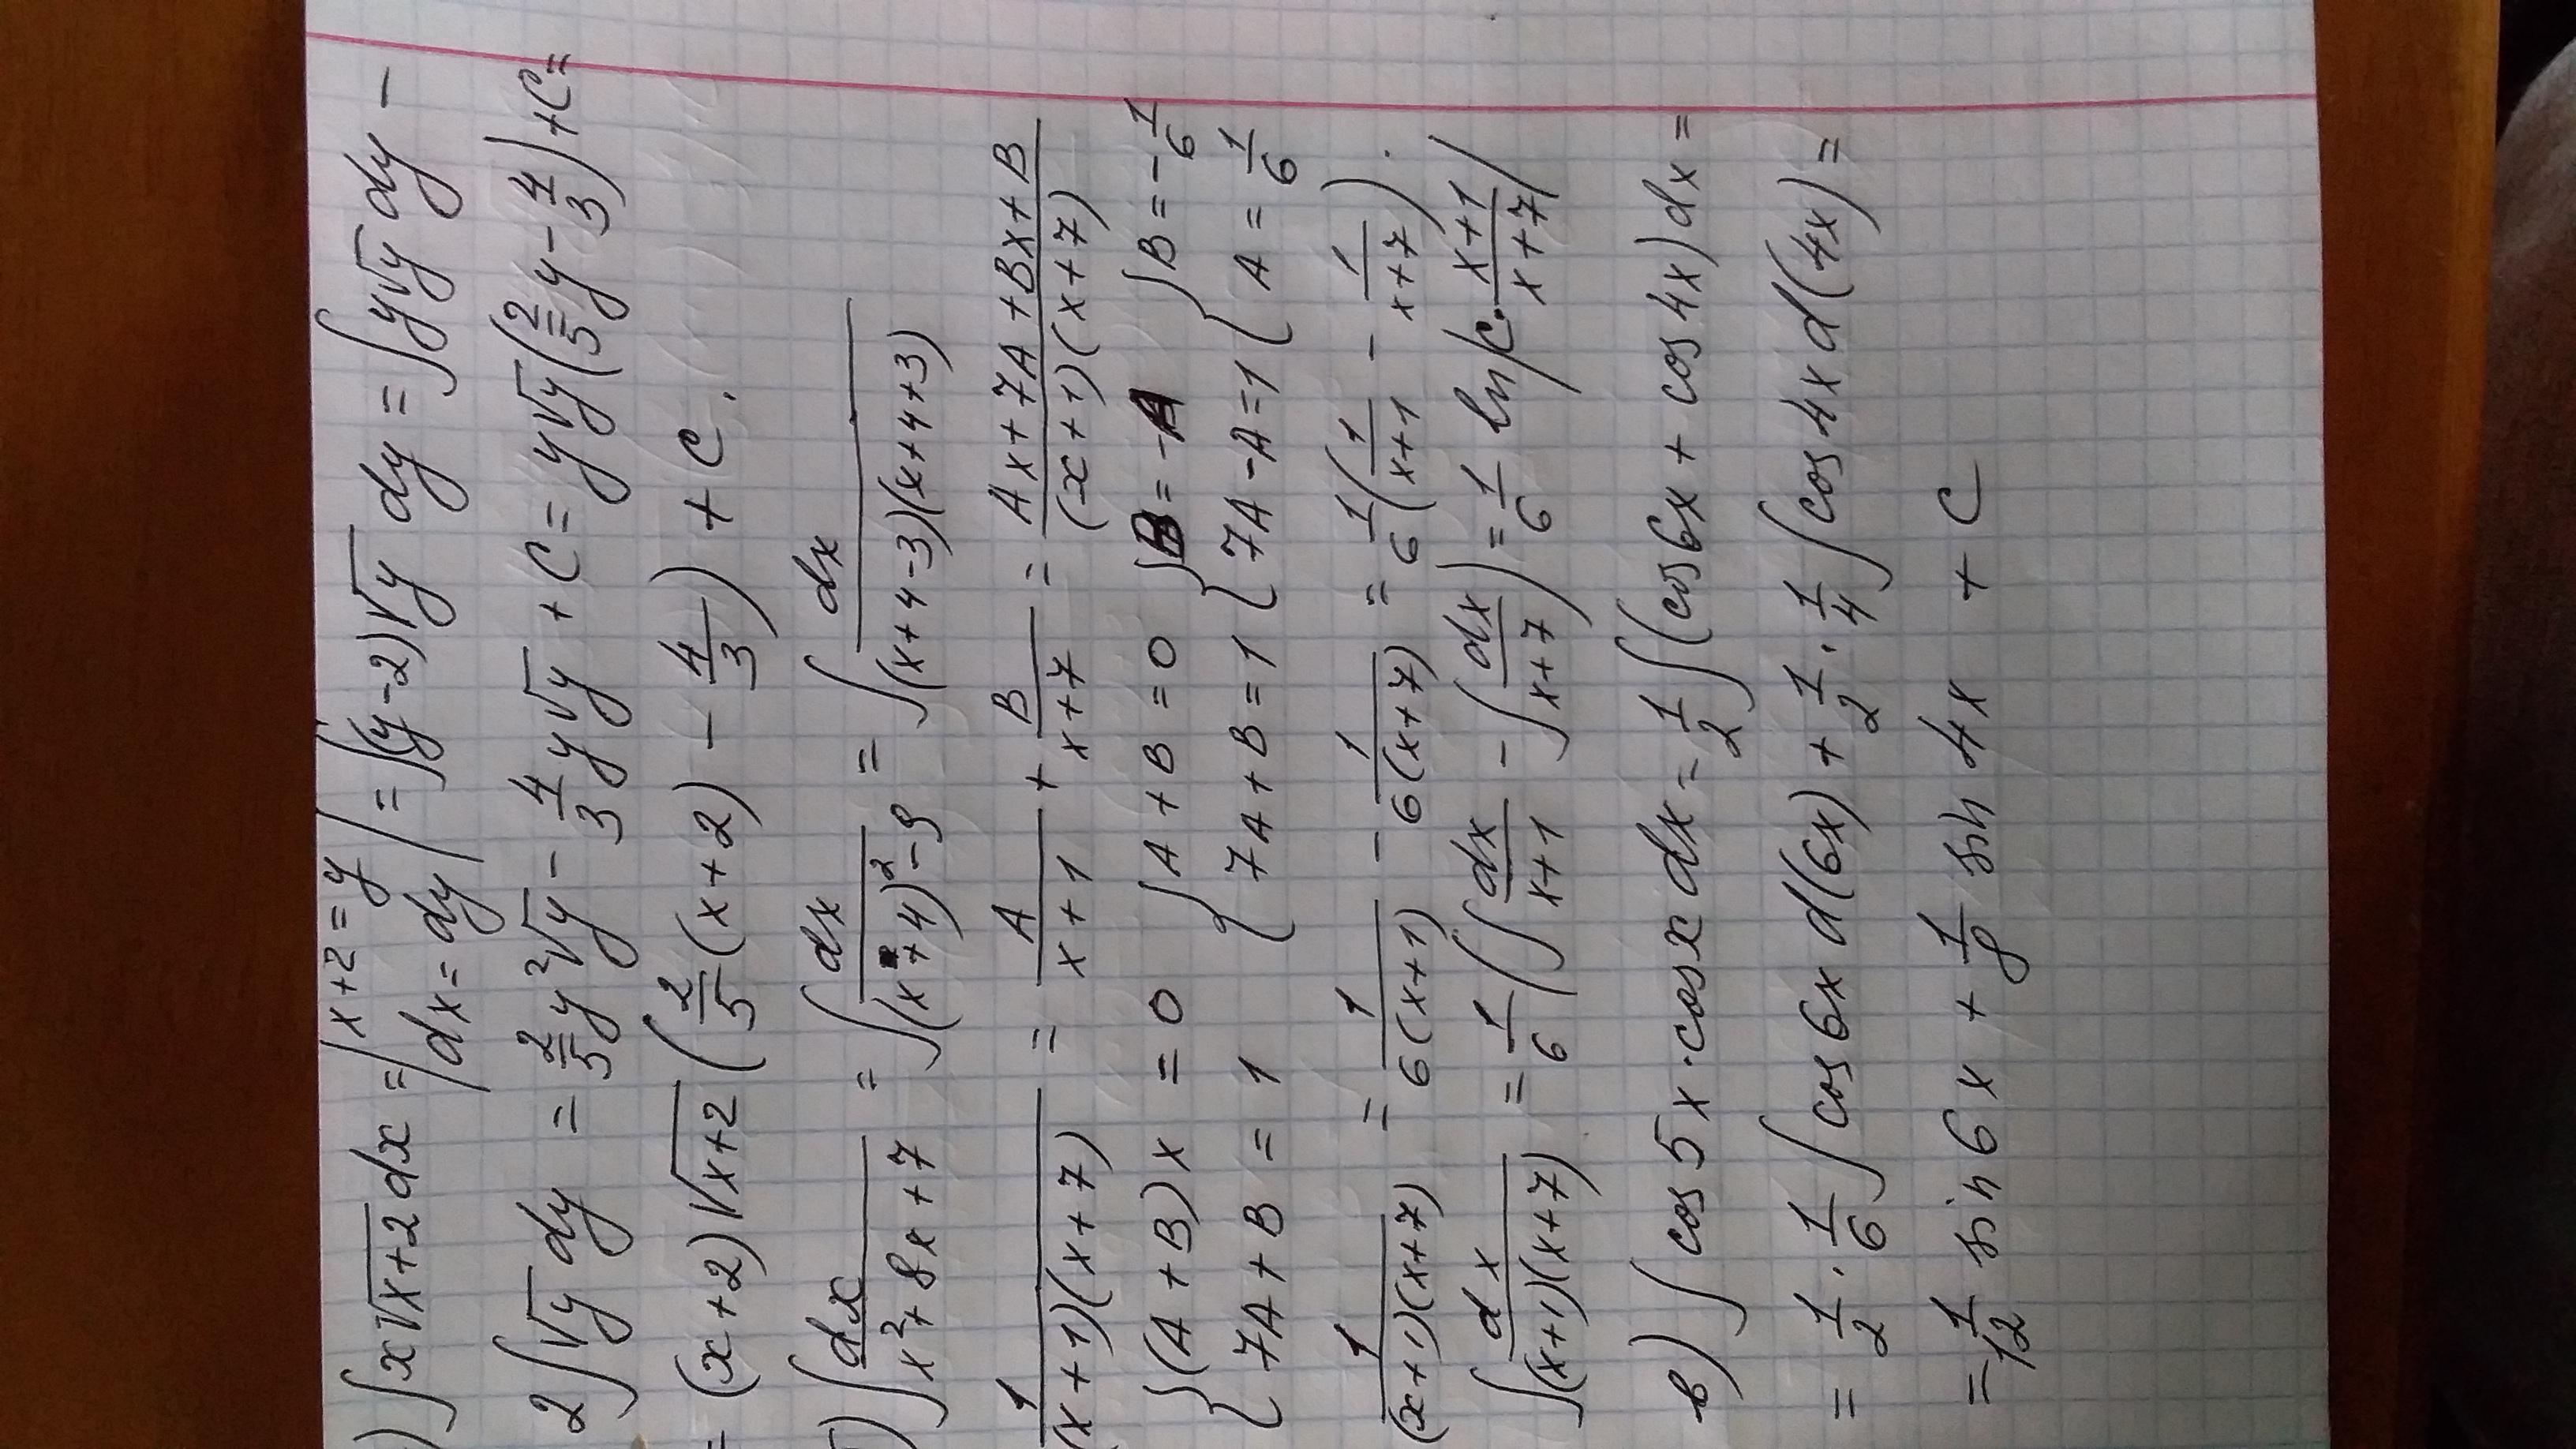 ) ∫x√(x+2) dx = |x+2=y, dx=dy| = ∫(y-2)√y dy = ∫y√y dy -
2∫√y dy = 2/5 y²√y - 4/3 y√y + C = y√y(2/5 y - 4/3) + C =
= (x+2)√(x+2) (2/5 (x+2) - 4/3) + C.
) ∫ dx/(x²+8x+7) = ∫ dx/((x+4)²-9) = ∫ dx/((x+4-3)(x+4+3))
1/((x+1)(x+7)) = A/(x+1) + B/(x+7) = (Ax+7A+Bx+B)/((x+1)(x+7))
{(A+B)x=0 {A+B=0 {B=-A {B=-1/6
{7A+B=1 {7A+B=1 {7A-A=1 {A=1/6
1/((x+1)(x+7)) = 1/(6(x+1)) - 1/(6(x+7)) = 1/6 (1/(x+1) - 1/(x+7)).
∫ dx/((x+1)(x+7)) = 1/6 (∫ dx/(x+1) - ∫ dx/(x+7)) = 1/6 ln|C·(x+1)/(x+7)|
в) ∫cos5x·cosx dx = 1/2 ∫(cos6x + cos4x)dx =
= 1/2 · 1/6 ∫cos6x d(6x) + 1/2 · 1/4 ∫cos4x d(4x) =
= 1/12 sin6x + 1/8 sin4x + C